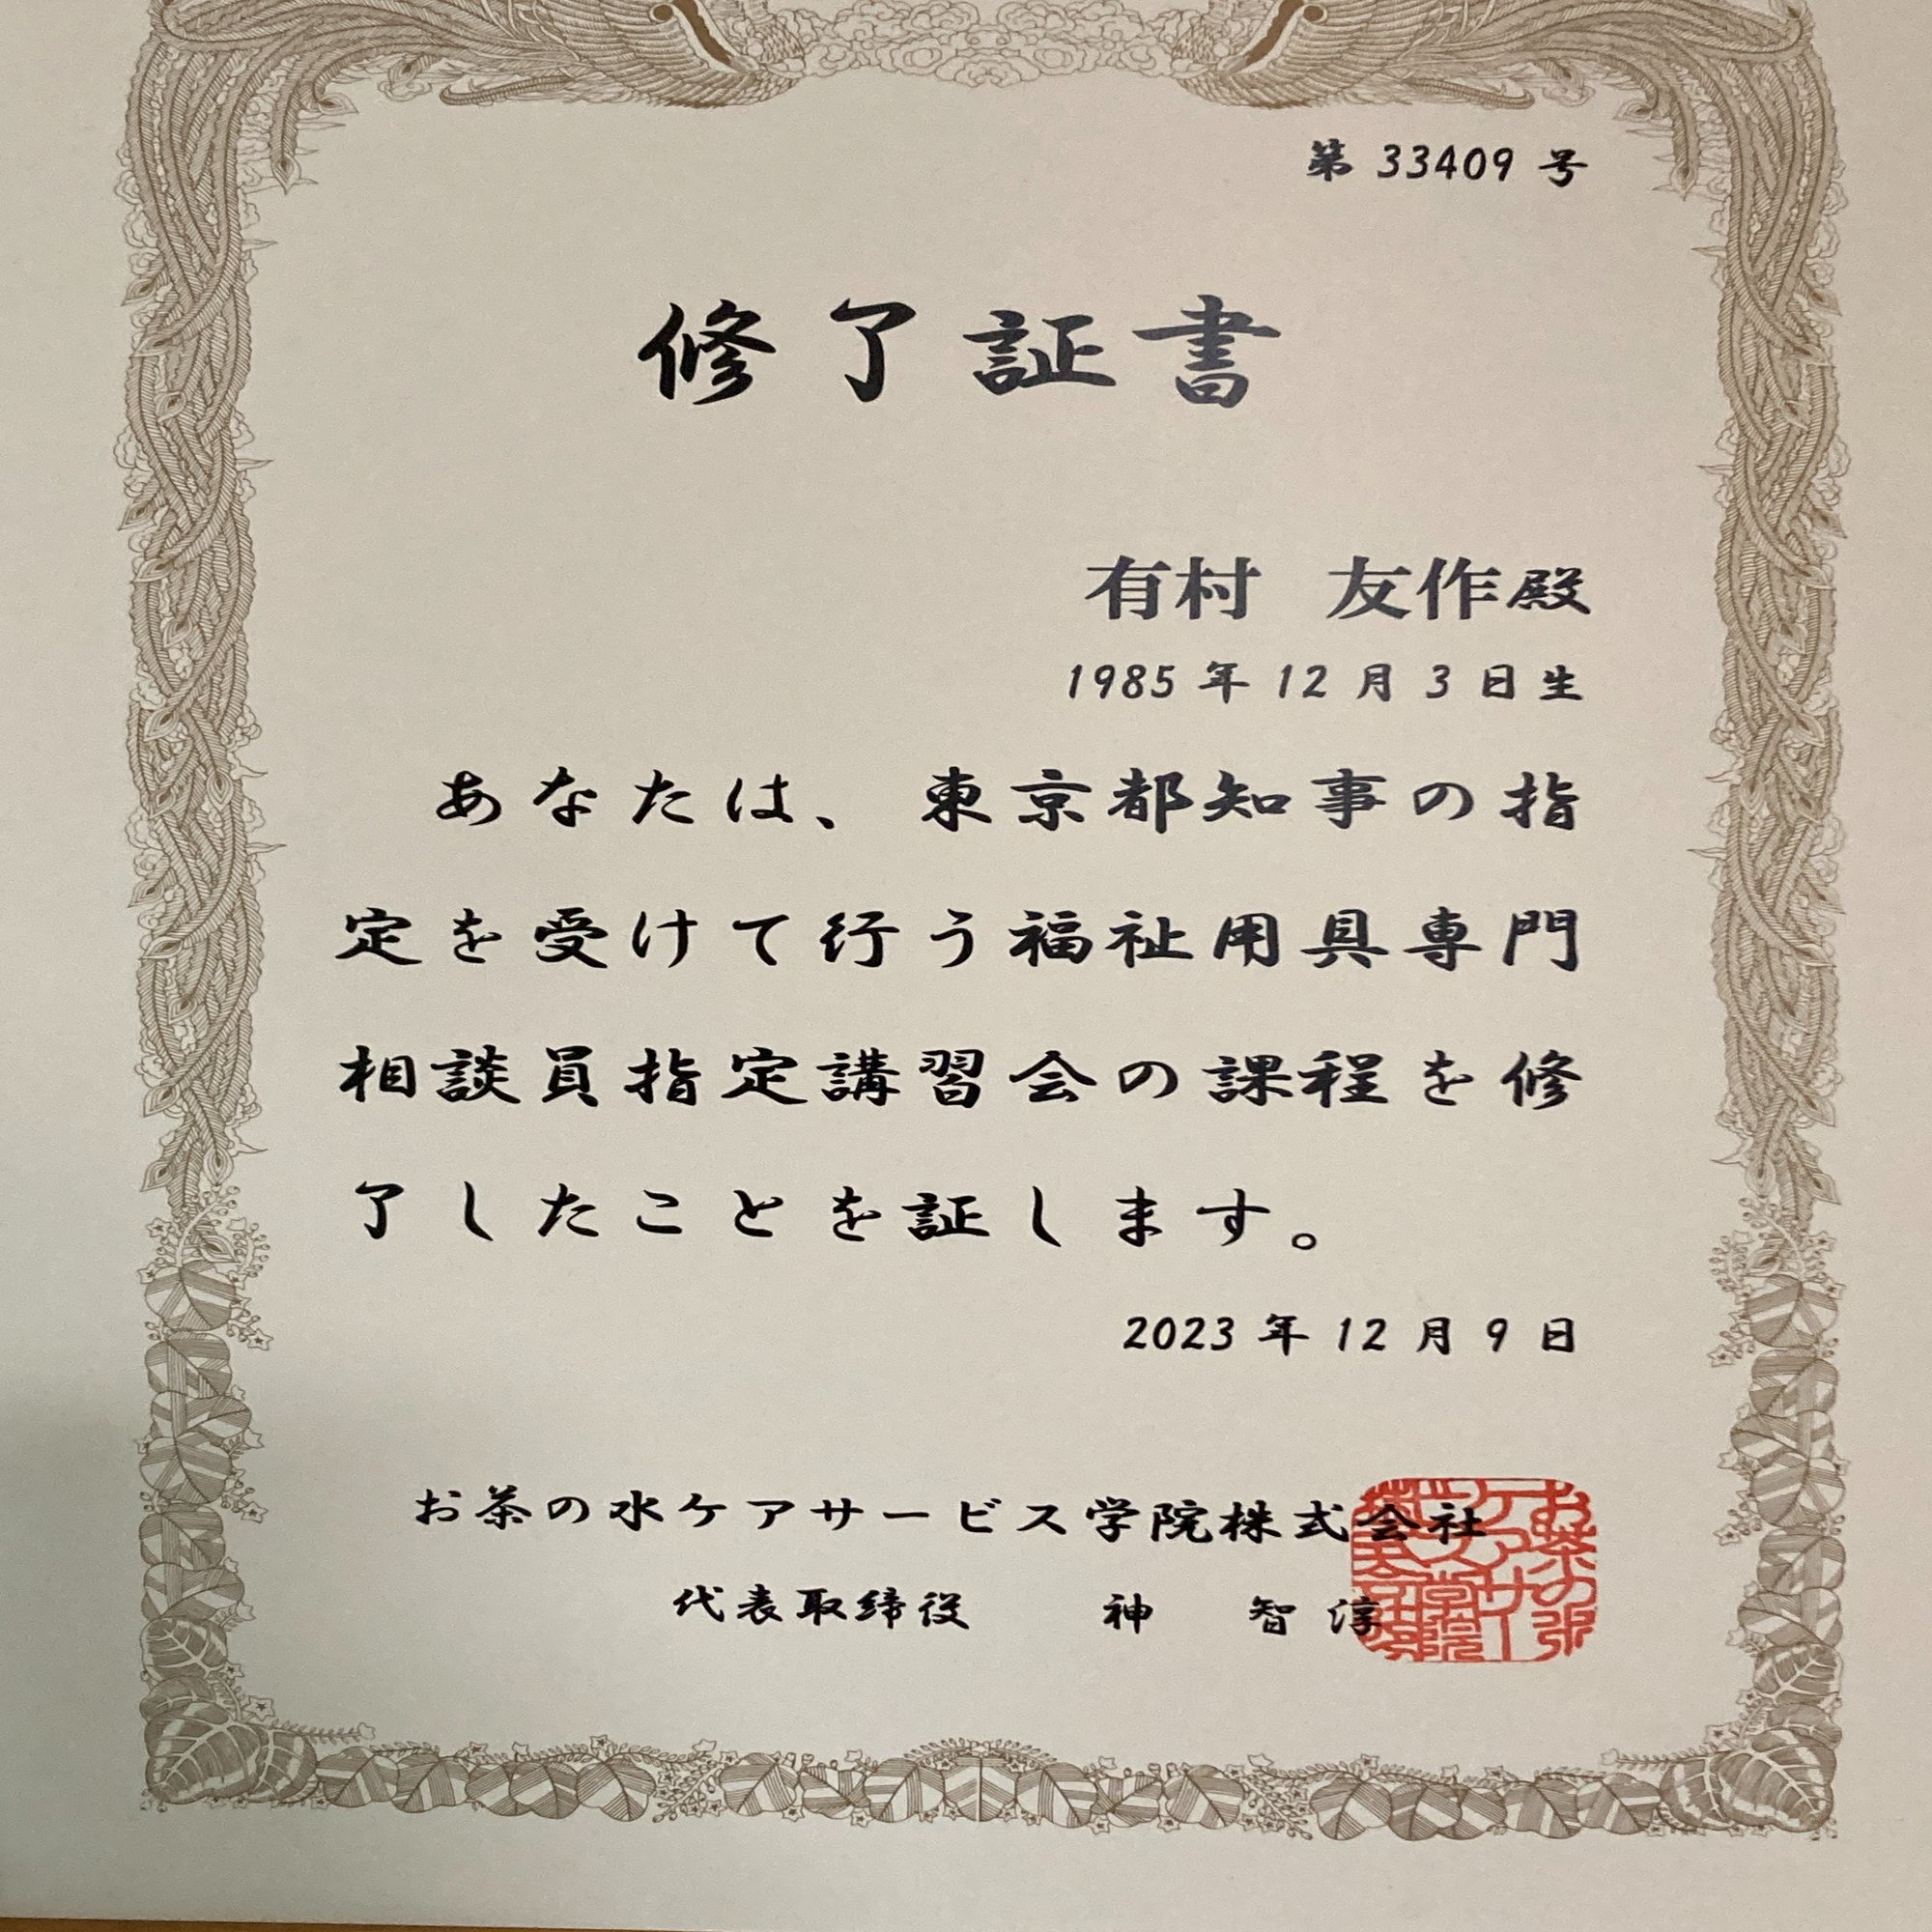 第 33409 号
修了証書
有村 友作殿
1985 年 12 月 3 日生
あなたは、東京都知事の指
定を受けて行う福祉用具専門
相談員指定講習会の課程を修
了したことを証します。
2023 年 12 月 9 日
お茶の水ケアサービス学院株式会社
代表取締役 神 智淳